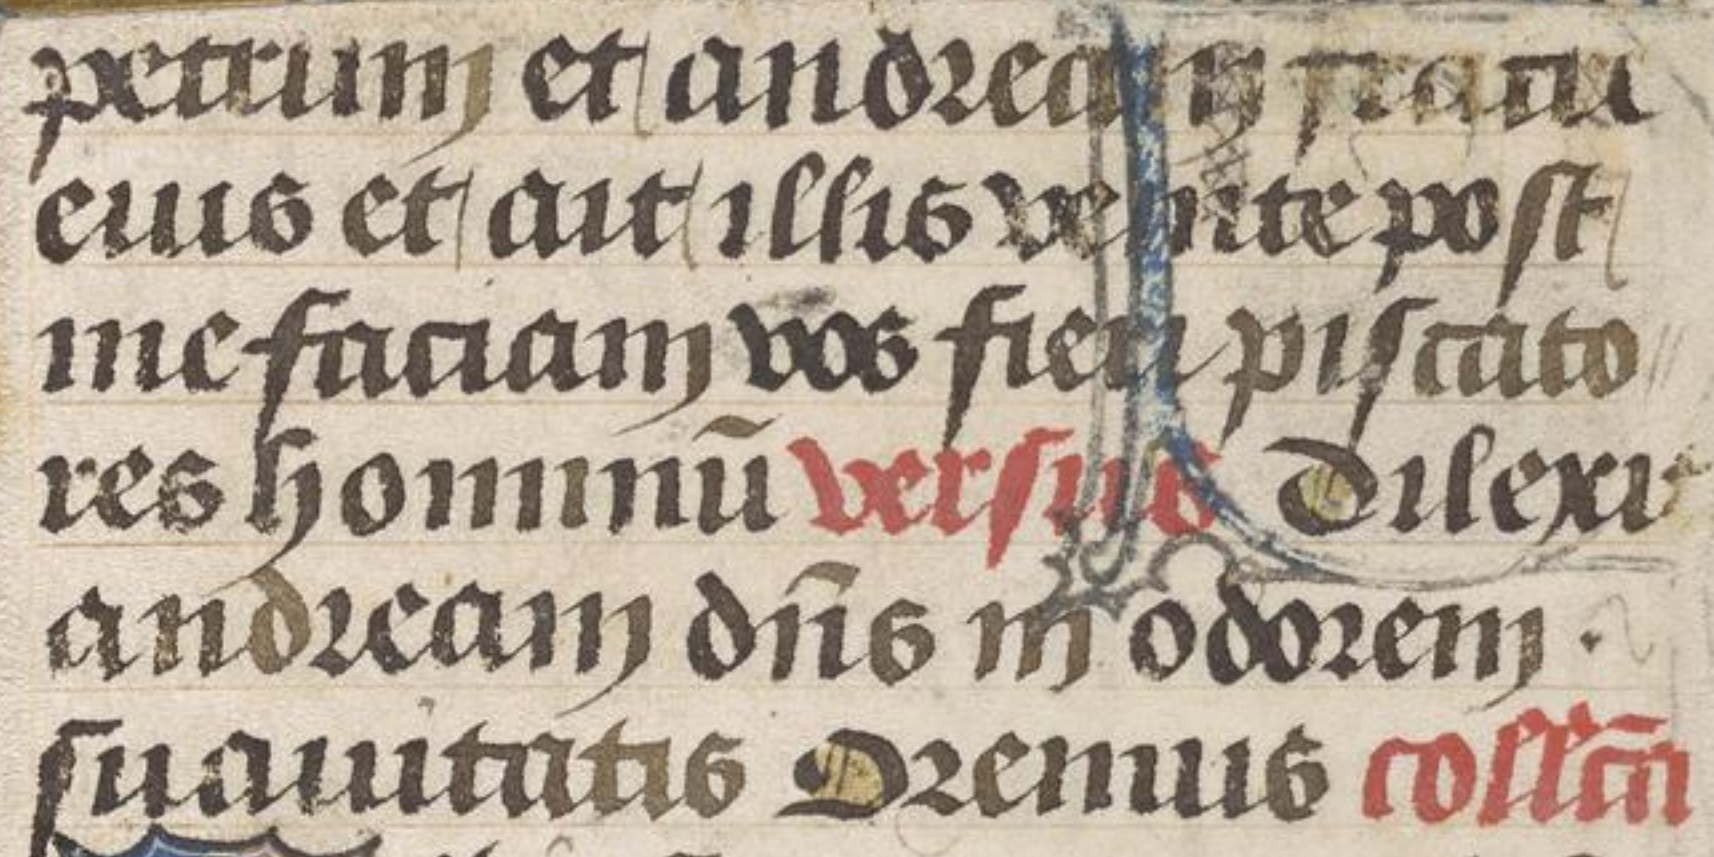 petrum et andream fratrem
eius et ait illis venite post
me faciam vos fieri piscato
res hominū versus Dilexit
andream dn̄s in odorem .
suavitatis Oremus coll'cā